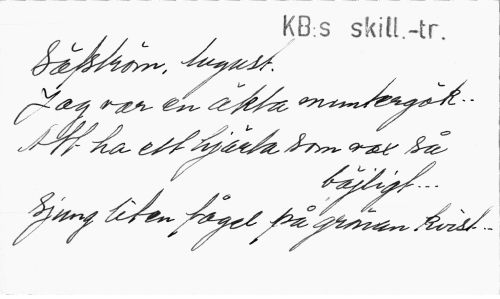 KB:s skill.-tr.
Säfström, August.
Jag var en äkta muntergök..
Att ha ett hjärta som vax så
böjligt...
Sjung liten fågel på grönan kvist..